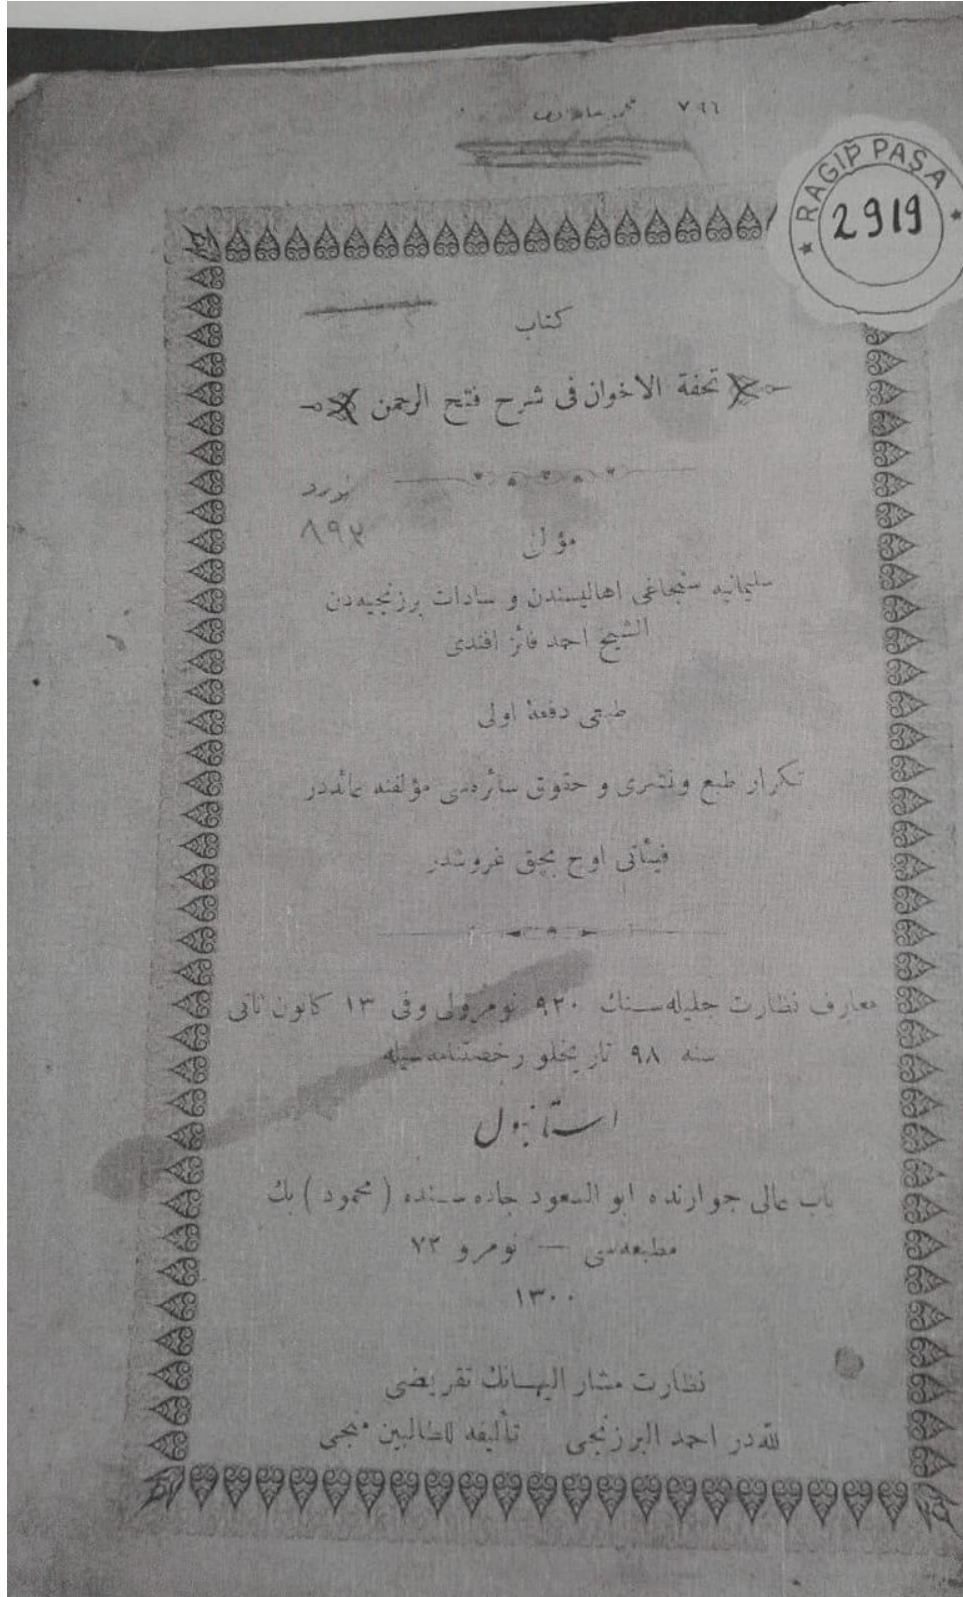 ٧٩٦
RAGIP PAŞA
2919
كتاب
تحفة الاخوان فى شرح فتح الرحمن
٨٩٢
مؤلف
سليمانيه سنجاغى اهاليسندن و سادات برزنجيه‌دن
الشيخ احمد فائز افندى
طبعى دفعهٔ اولى
تكرار طبع ونشرى و حقوق سائره‌سى مؤلفنه عائددر
فيئاتى اوچ بچق غروشدر
معارف نظارت جليله‌سنك ٩٢٠ نومرولى وفى ١٣ كانون ثانى
سنه ٩٨ تاريخلو رخصتنامه‌سيله
استانبول
باب عالى جوارنده ابو السعود جاده‌سنده ( محمود ) بك
مطبعه‌سى — نومرو ٧٢
١٣٠٠
نظارت مشار اليهانك تقريضى
لله در احمد البرزنجى تأليفه للطالبين منجى